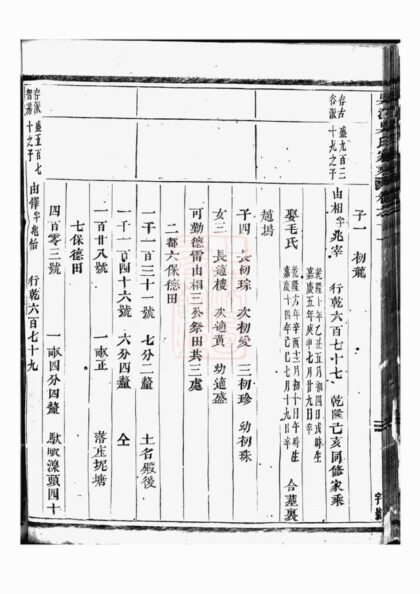 子一 初龍
存古谷派 盛九百三十九之子 由相 字兆宰 行乾六百七十七 乾隆己亥同修家乘
乾隆十年乙丑五月初四日戌時生
嘉慶五年庚申七月初九日卒
娶毛氏
乾隆六年辛酉三月初十日午時生
嘉慶十四年己巳七月十九日卒
合墓裏
趙塢
子四 長初琮 次初愛 三初珍 幼初珠
女三 長適樓 次適黃 幼適盛
可勤德雷由相三公祭田共三處
二都六保德田
一千一百三十一號 七分二釐 土名殿後
一千一百四十六號 六分四釐 仝
一百廿八號 一畝正 落庄坭塘
七保德田
四百零三號 一畝四分四釐 畈漈頭四十
存派智湯 盛五百七十之子 由鐸 字兆怡 行乾六百七十九